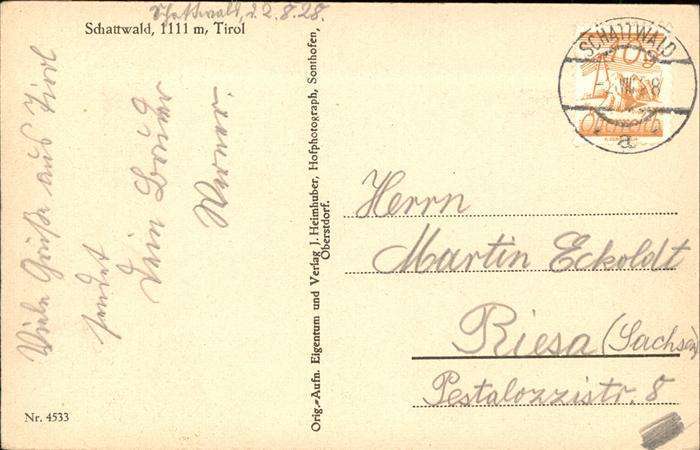 Schattwald, d. 2.8.28.
Schattwald, 1111 m, Tirol
Viele Grüße aus Tirol
sendet
Dein Bruder
Werner
Nr. 4533
Orig.-Aufn. Eigentum und Verlag J. Heimhuber, Hofphotograph, Sonthofen,
Oberstdorf.
SCHATTWALD
VIII 28
a
Österreich
Herrn
Martin Eckoldt
Riesa (Sachsen)
Pestalozzistr. 8